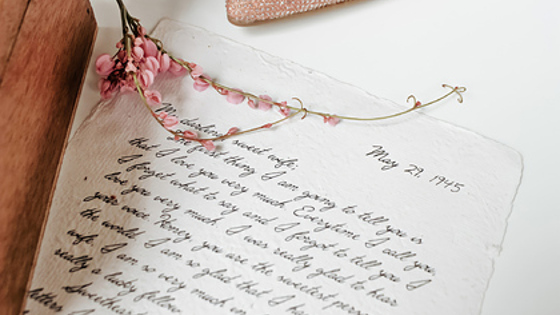 May 29, 1945
My darling sweet wife,
The first thing I am going to tell you is
that I love you very much. Everytime I call you,
I forget what to say and I forgot to tell you I
love you very much. I was really glad to hear
your voice. Honey, you are the sweetest person
the world. I am so glad that I ha
wife. I am so very much in
really a lucky fellow.
Sweetheart
letters